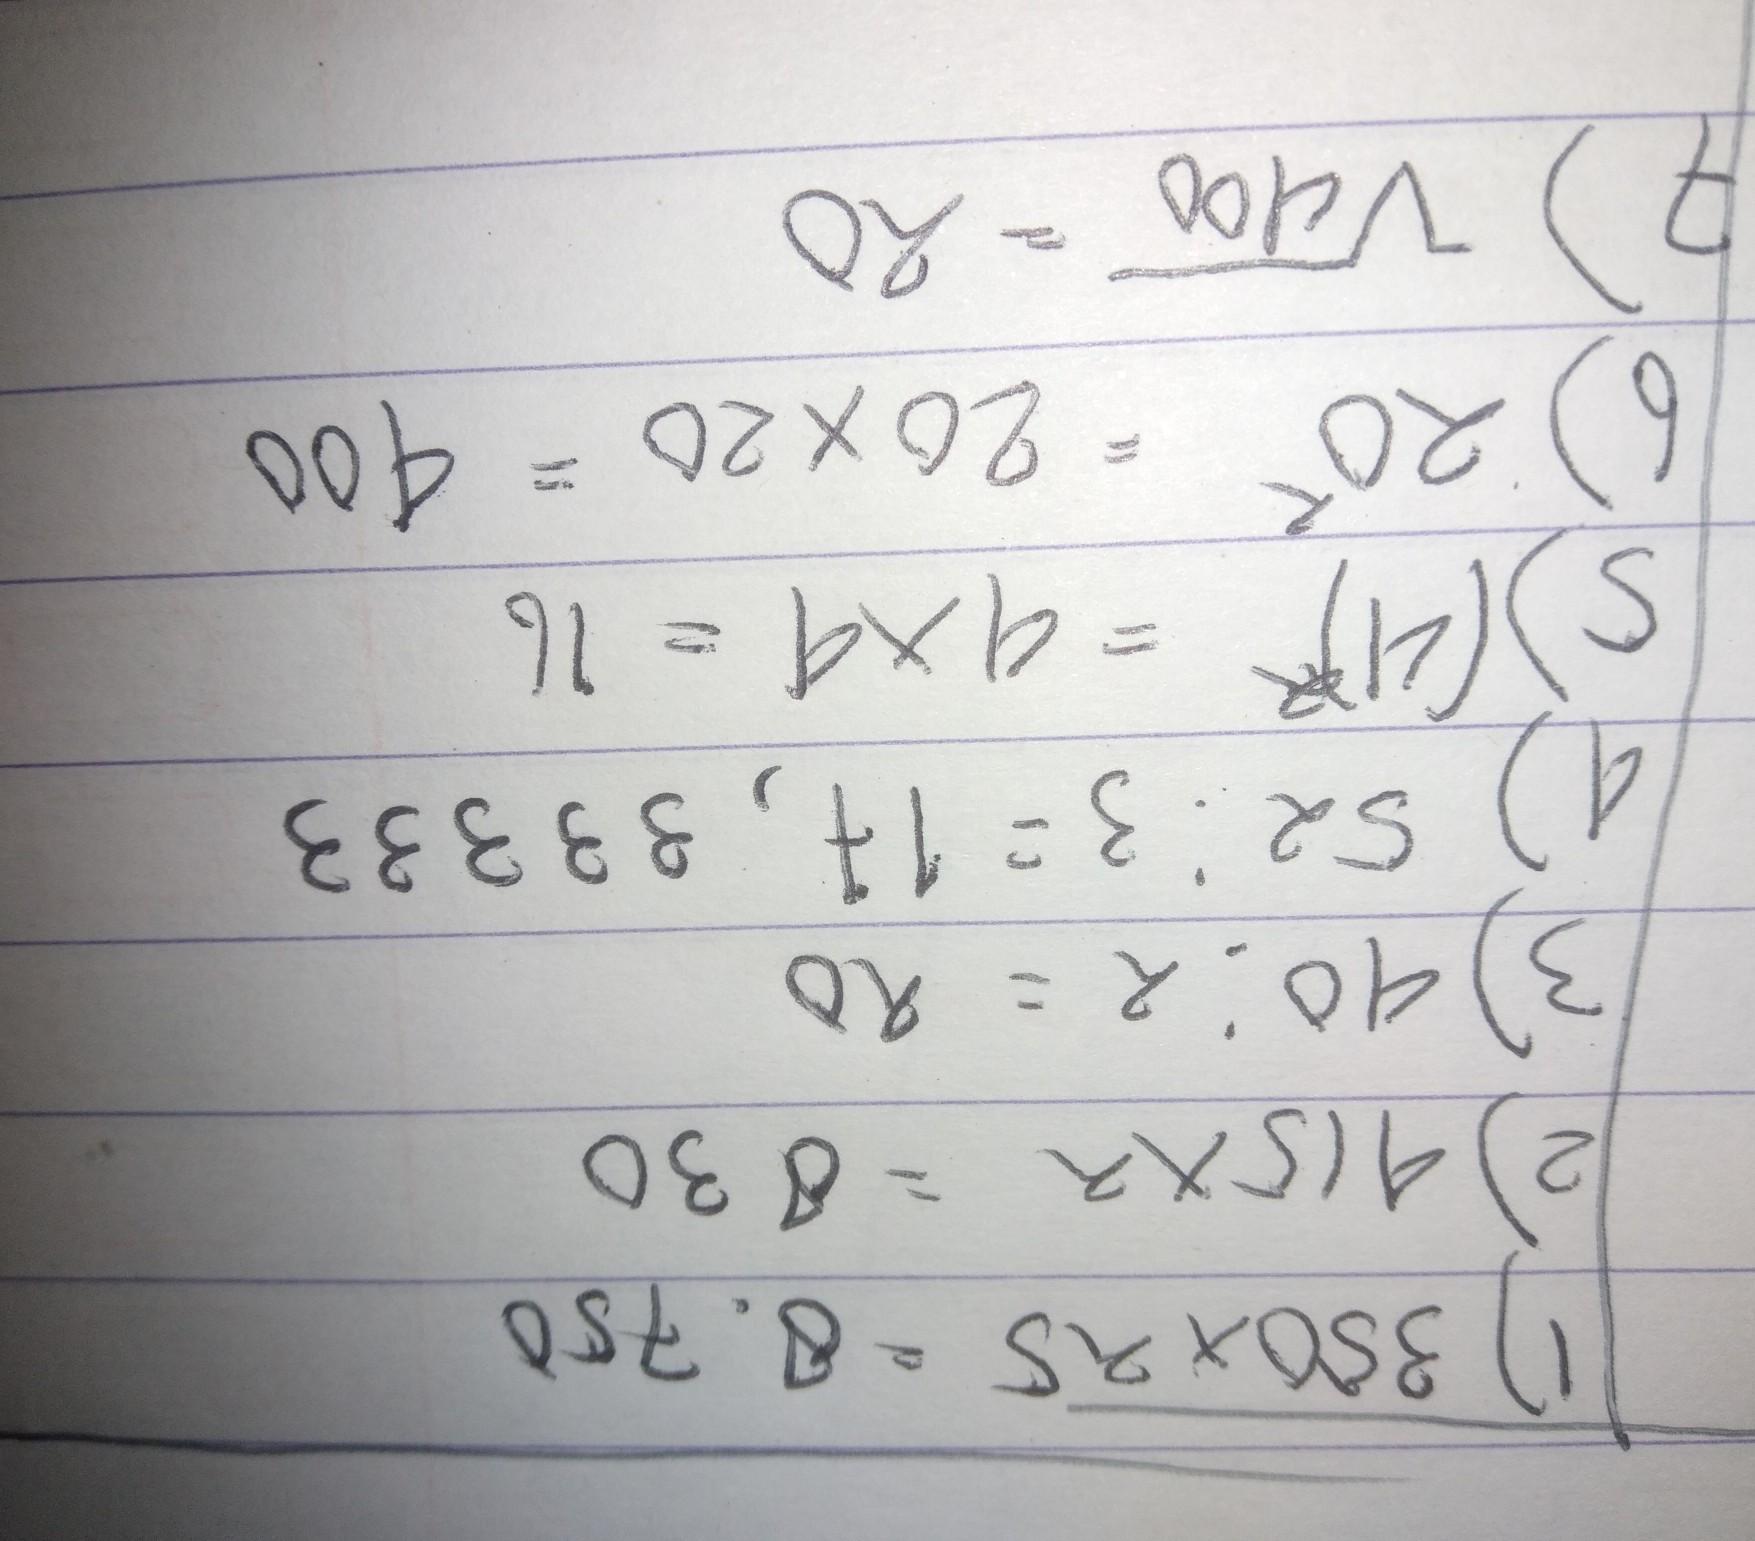 1) 350x25 = 8.750
2) 415x2 = 830
3) 40:2 = 20
4) 52:3 = 17,33333
5) (4)² = 4x4 = 16
6) 20² = 20x20 = 400
7) √400 = 20